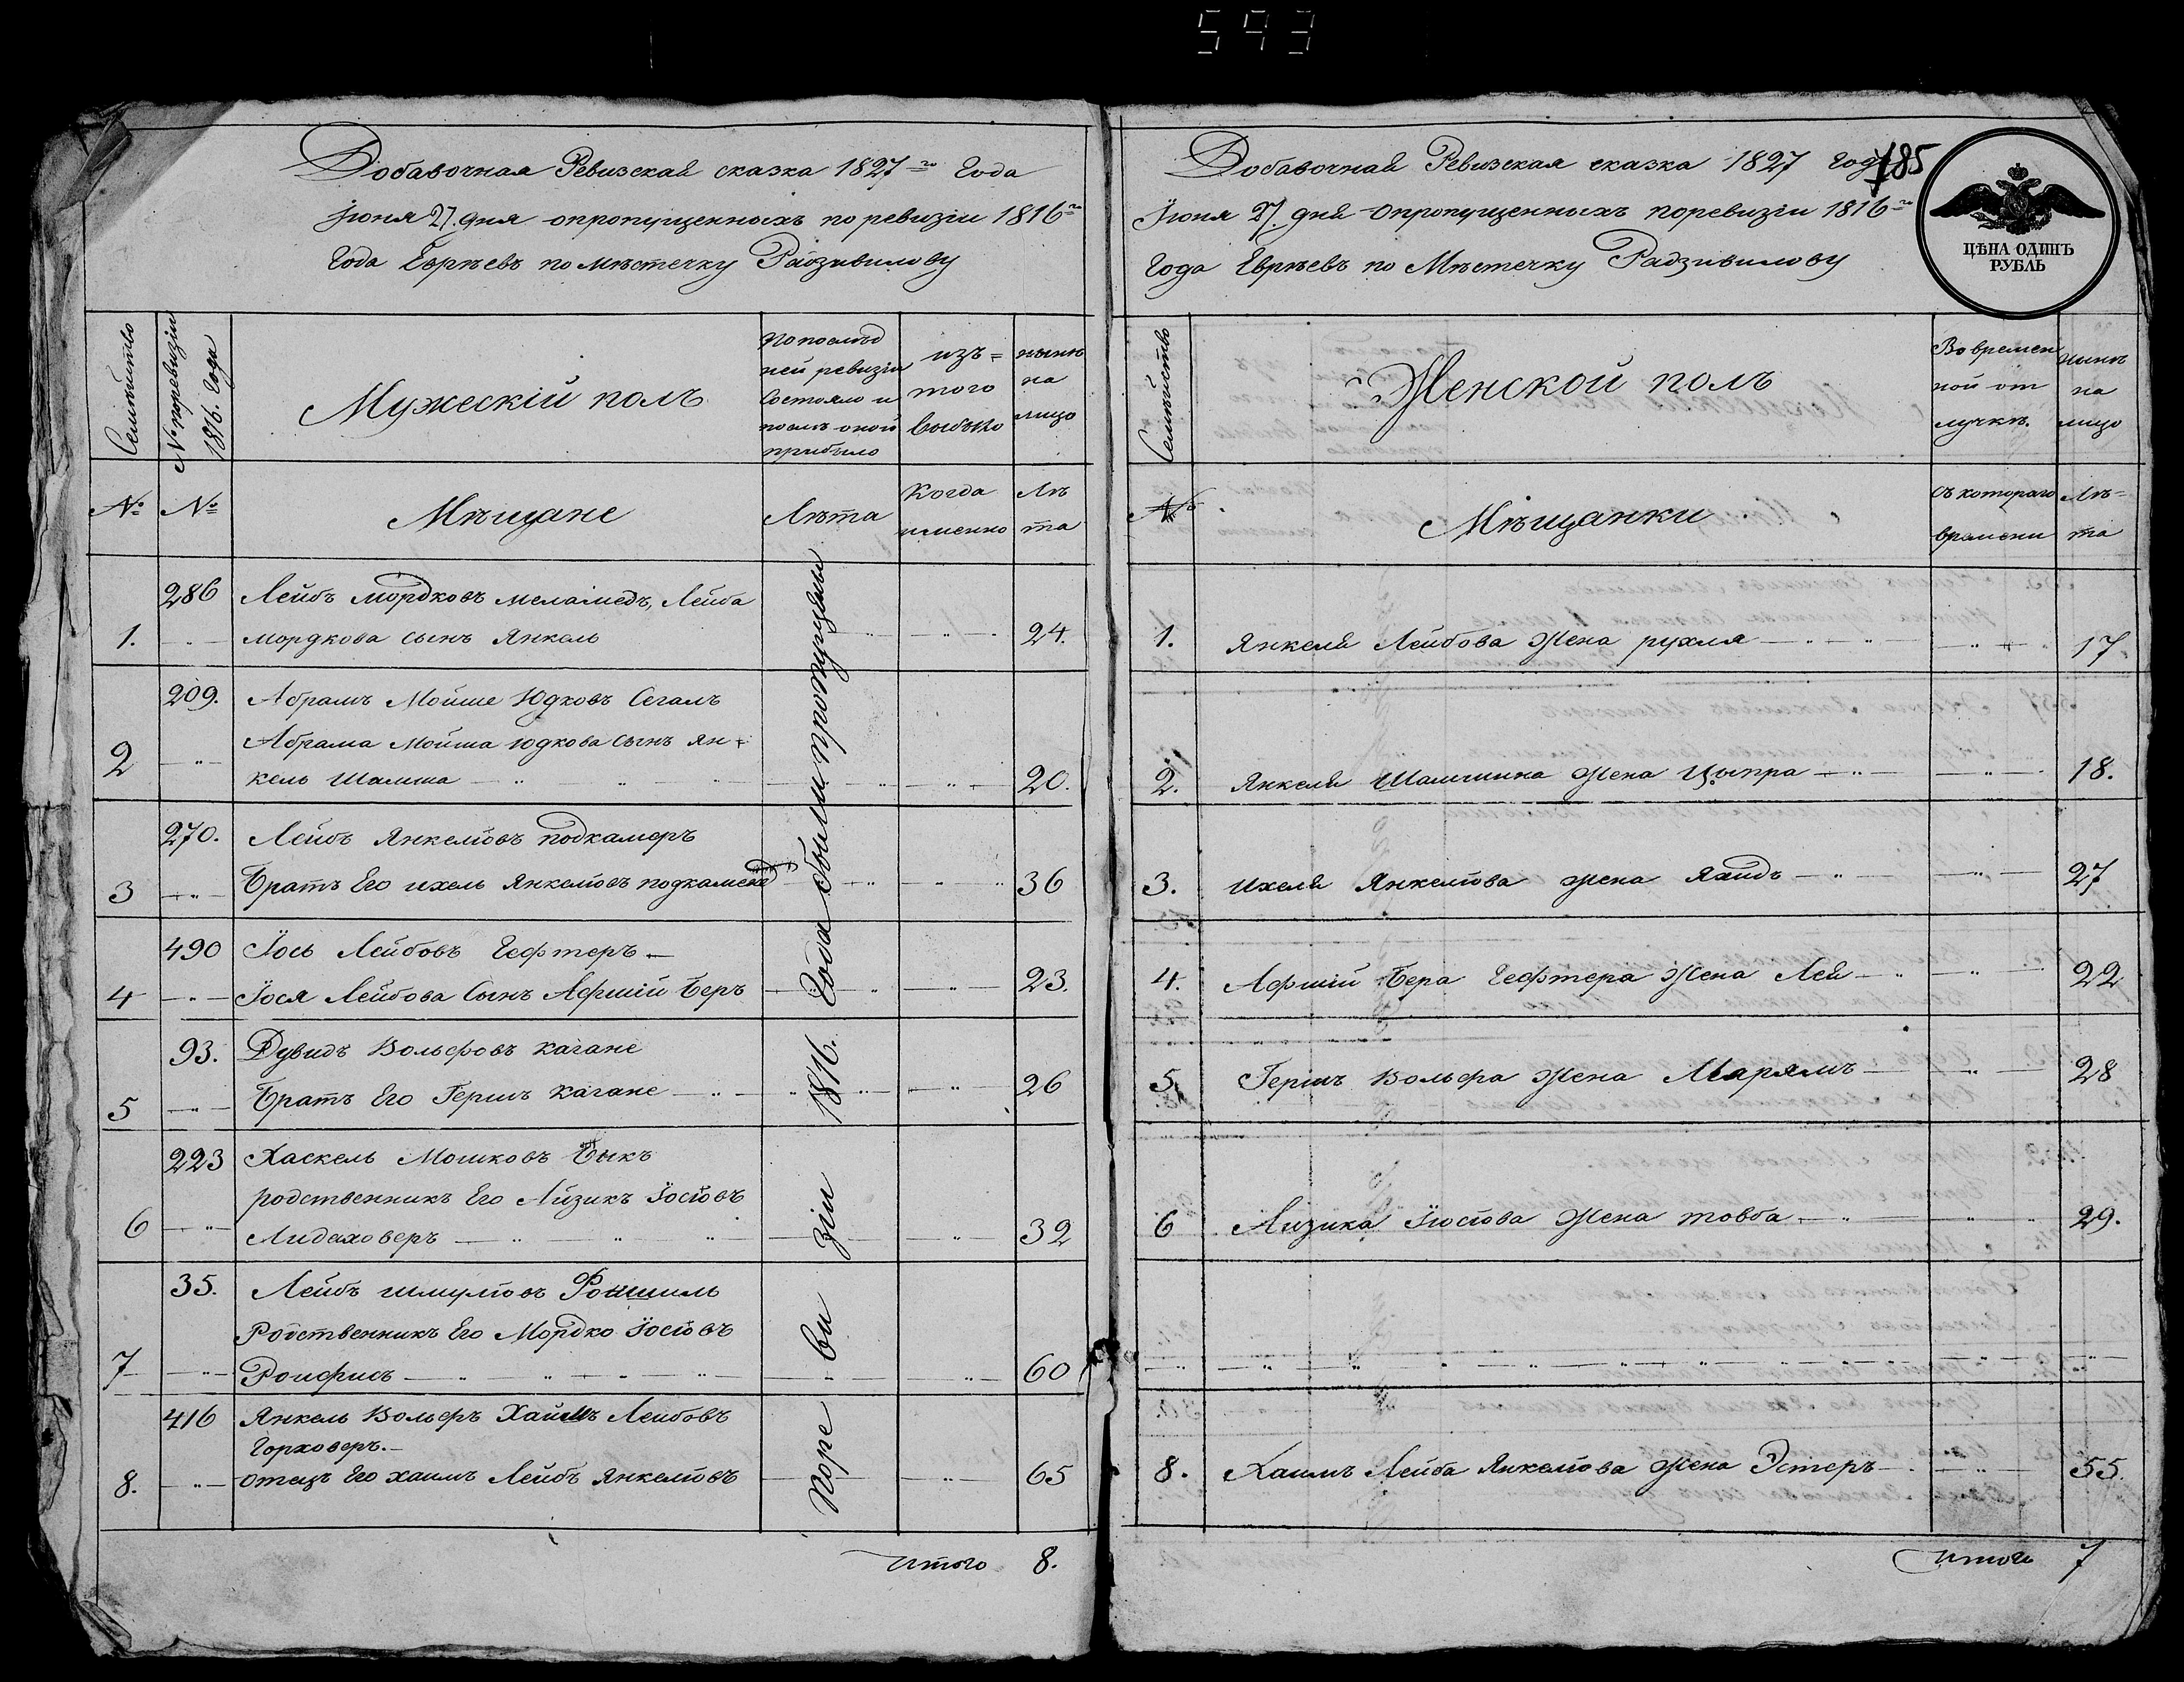 593
Добавочная Ревизская сказка 1827-го Года
Іюня 27. дня опропущенныхъ по ревизіи 1816-го
Года Евреѣвъ по мѣстечку Радзивилову
Семѣйство
№ поревизіи 1816. Года
Мужескій полъ
Попослѣд
ней ревизіи
Состояло и
послѣ оной
прибыло
изъ =
того
выбыло
нынѣ
на
лицо
№ № Мѣщане Лѣта
Когда
именно
Лѣ
та
286 Лейбъ Мордковъ меламедъ, Лейба
1. мордкова сынъ Янкель 24.
209. Абрамъ Мойше Юдковъ Сегалъ
Абрама Мойша Юдкова Сынъ Ян=
2 кель Шамша 20.
270. Лейбъ Янкелiовъ подкамеръ
3 Братъ Его ихель Янкелiовъ 36
490 Іось Лейбовъ Гефтеръ
4 Іося Лейбова Сынъ Афшій Беръ 23.
93. Дувидъ Вольфовъ Кагане
5 Братъ Его Гершъ Кагане 26
223 Хаскель Мошковъ Быкъ
родственникъ Его Айзикъ Іосіовъ
6 Лидаховеръ 32
35. Лейбъ шмулiовъ
Родственникъ Его Мордко Іосіовъ
7 Роифисъ 60
416 Янкель Вольфъ Хаимъ Лейбовъ
Горховеръ.
8. отецъ Его хаимъ Лейбъ Янкелiовъ 65
поре ви зіи 1816. Года были пропущены
итого 8.
Добавочная Ревизская сказка 1827 Года
185
Іюня 27. дня опропущенныхъ поревизіи 1816-го
Года Евреѣвъ по Мѣстечку Радзивилову
ЦѢНА ОДИНЪ
РУБЛЬ
Семѣйство
Женской полъ
Во времен
ной от
лучкѣ.
нынѣ
на
лицо
№ Мѣщанки
съ котораго
времени
Лѣ=
та
1. Янкеля Лейбова Жена рухля 17.
2. Янкеля Шамшина Жена Ципра 18.
3. ихеля Янкелiова жена Яаидъ 27
4. Афшій Бера Гефтера Жена Лея 22
5. Гершъ Вольфа Жена Марямъ 28
6 Айзика Іюсіова Жена товба 29.
8. Хаимъ Лейба Янкелiова Жена Эстеръ 55.
итого 7